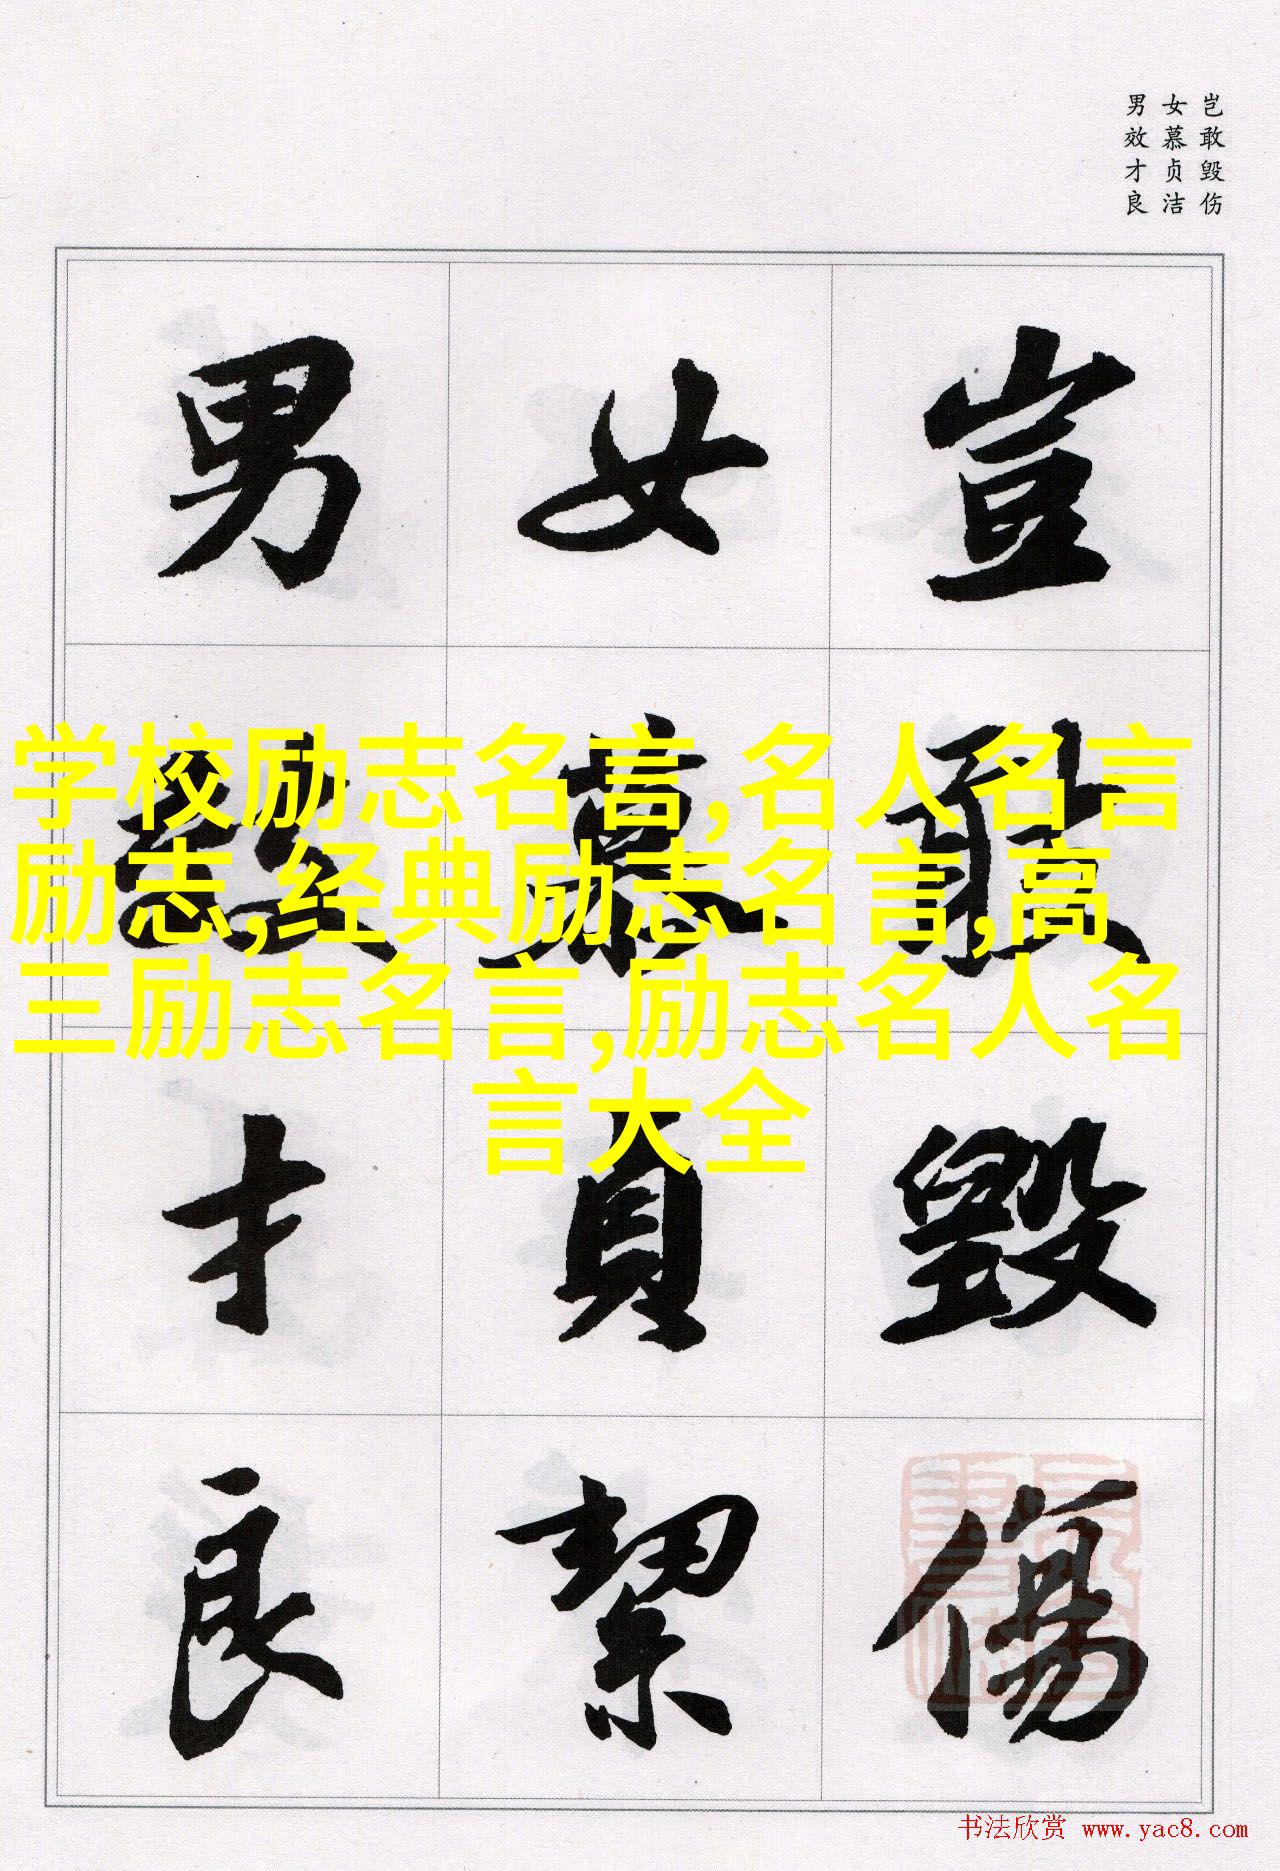 岂敢毁伤
女慕贞洁
男效才良
豈敢毀傷
女慕貞絜
男效才良
学校励志名言,名人名言
励志,经典励志名言,高
三励志名言,励志名人名
言大全
书法欣赏 www.yac8.com